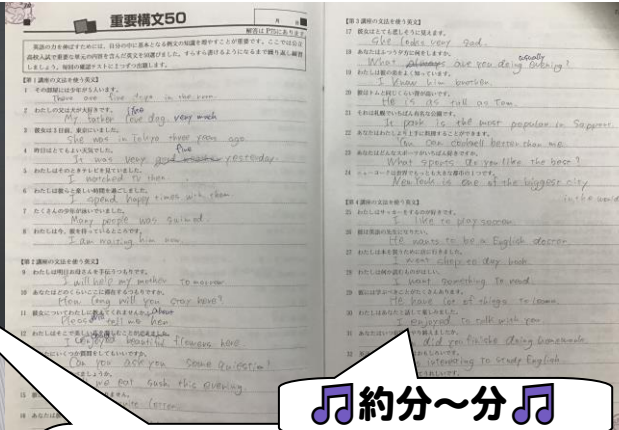 重要構文50
月 日
解答はP75にあります
英語の力を伸ばすためには、自分の中に基本となる例文の知識を増やすことが重要です。ここでは公立
高校入試で重要な文法の内容を含んだ英文を50選びました。すらすら書けるようになるまで繰り返し練習
しましょう。毎回の確認テストに2つずつ出題します。
【第1講座の文法を使う英文】
1 その部屋には少年が5人います。
There are five boys in the room.
2 わたしの父は犬が大好きです。
My father love dog very much
3 彼女は3年前、東京にいました。
She was in Tokyo three years ago
4 昨日はとてもよい天気でした。
It was very fine yesterday.
5 わたしはそのときテレビを見ていました。
I watched TV then.
6 わたしは彼らと楽しい時間を過ごしました。
I spend happy times with them.
7 たくさんの少年が泳いでいました。
Many people was swimed.
8 わたしは今、彼を待っているところです。
I am waiting him now.
【第2講座の文法を使う英文】
9 わたしは明日お母さんを手伝うつもりです。
I will help my mother tomorrow
10 あなたはどのくらいここに滞在するつもりですか。
How long will you stay here?
11 彼女についてわたしに教えてくれませんか。
Please tell me about her
12
I enjoyed beautiful flowers here.
Can you ask you some question?
we eat sush this evening
15
letter
16 あなたは
【第3講座の文法を使う英文】
17 彼女はとても悲しそうに見えます。
She looks very sad.
18 あなたはふつう夕方に何をしますか。
What are you doing usually evening?
19 わたしは彼の弟をよく知っています。
I know him brother.
20 彼はトムと同じくらい背が高いです。
He is as tall as Tom.
21 それは札幌でいちばん有名な公園です。
It park is the most popular in Sapporo.
22 あなたはわたしより上手に料理することができます。
You can cook well better than me
23 あなたはどんなスポーツがいちばん好きですか。
What sports do you like the best?
24 ニューヨークは世界でもっとも大きな都市の1つです。
New York is one of the biggest city
in the world
【第4講座の文法を使う英文】
25 わたしはサッカーをするのが好きです。
I like to play soccer.
26 彼は英語の先生になりたい。
He wants to be a English
27 わたしは本を買うために店に行きました。
I went shop to buy book.
28 わたしは何か読むものがほしい。
I want something to read
29 彼には学ぶべきことがたくさんあります。
He have lot of things to learn
30 わたしはあなたと話して楽しみました。
I enjoyed to talk with you
31 あなたはいつ
did you finishe doing homework
interesting to study English
🎵約分～分🎵